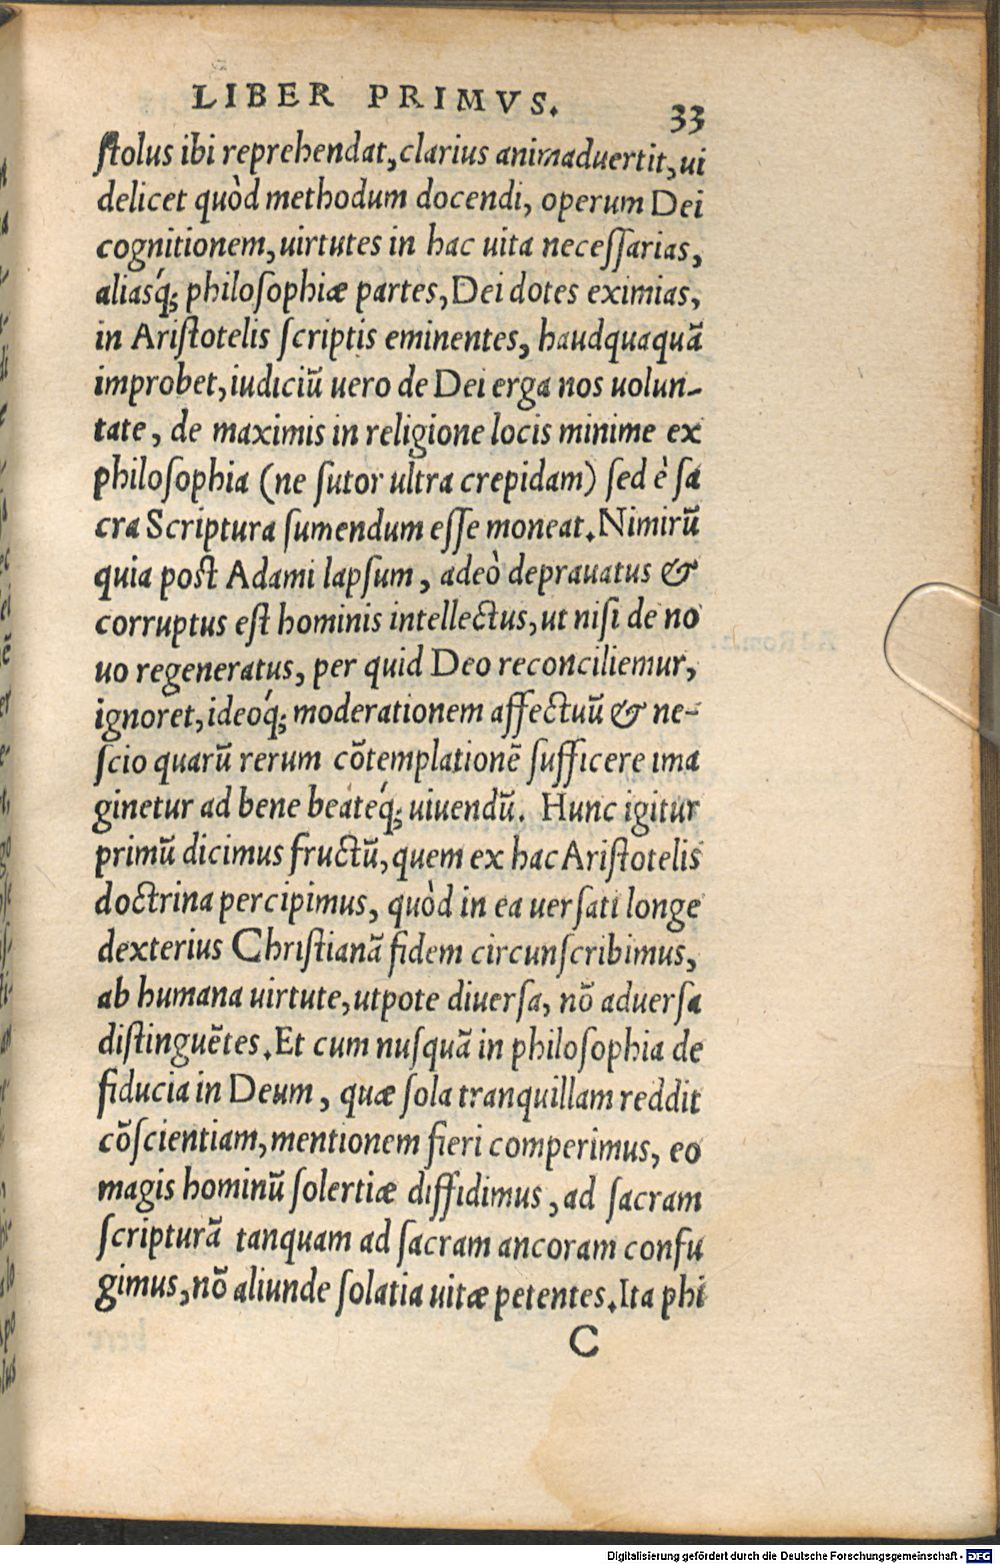 LIBER PRIMVS. 33
ſtolus ibi reprehendat, clarius animaduertit, ui
delicet quòd methodum docendi, operum Dei
cognitionem, uirtutes in hac uita neceſſarias,
aliasq́; philoſophiæ partes, Dei dotes eximias,
in Ariſtotelis ſcriptis eminentes, haudquaquã
improbet, iudiciũ uero de Dei erga nos uolun-
tate, de maximis in religione locis minime ex
philoſophia (ne ſutor ultra crepidam) ſed è ſa
cra Scriptura ſumendum eſſe moneat. Nimirũ
quia poſt Adami lapſum, adeò deprauatus &
corruptus eſt hominis intellectus, ut niſi de no
uo regeneratus, per quid Deo reconciliemur,
ignoret, ideoq́; moderationem affectuũ & ne-
ſcio quarũ rerum cõtemplationẽ ſufficere ima
ginetur ad bene beateq́; uiuendũ. Hunc igitur
primũ dicimus fructũ, quem ex hac Ariſtotelis
doctrina percipimus, quòd in ea uerſati longe
dexterius Chriſtianã fidem circunſcribimus,
ab humana uirtute, utpote diuerſa, nõ aduerſa
diſtinguẽtes. Et cum nuſquã in philoſophia de
fiducia in Deum, quæ ſola tranquillam reddit
cõſcientiam, mentionem fieri comperimus, eo
magis hominũ ſolertiæ diffidimus, ad ſacram
ſcripturã tanquam ad ſacram ancoram confu
gimus, nõ aliunde ſolatia uitæ petentes. Ita phi
C
Digitalisierung gefördert durch die Deutsche Forschungsgemeinschaft - DFG